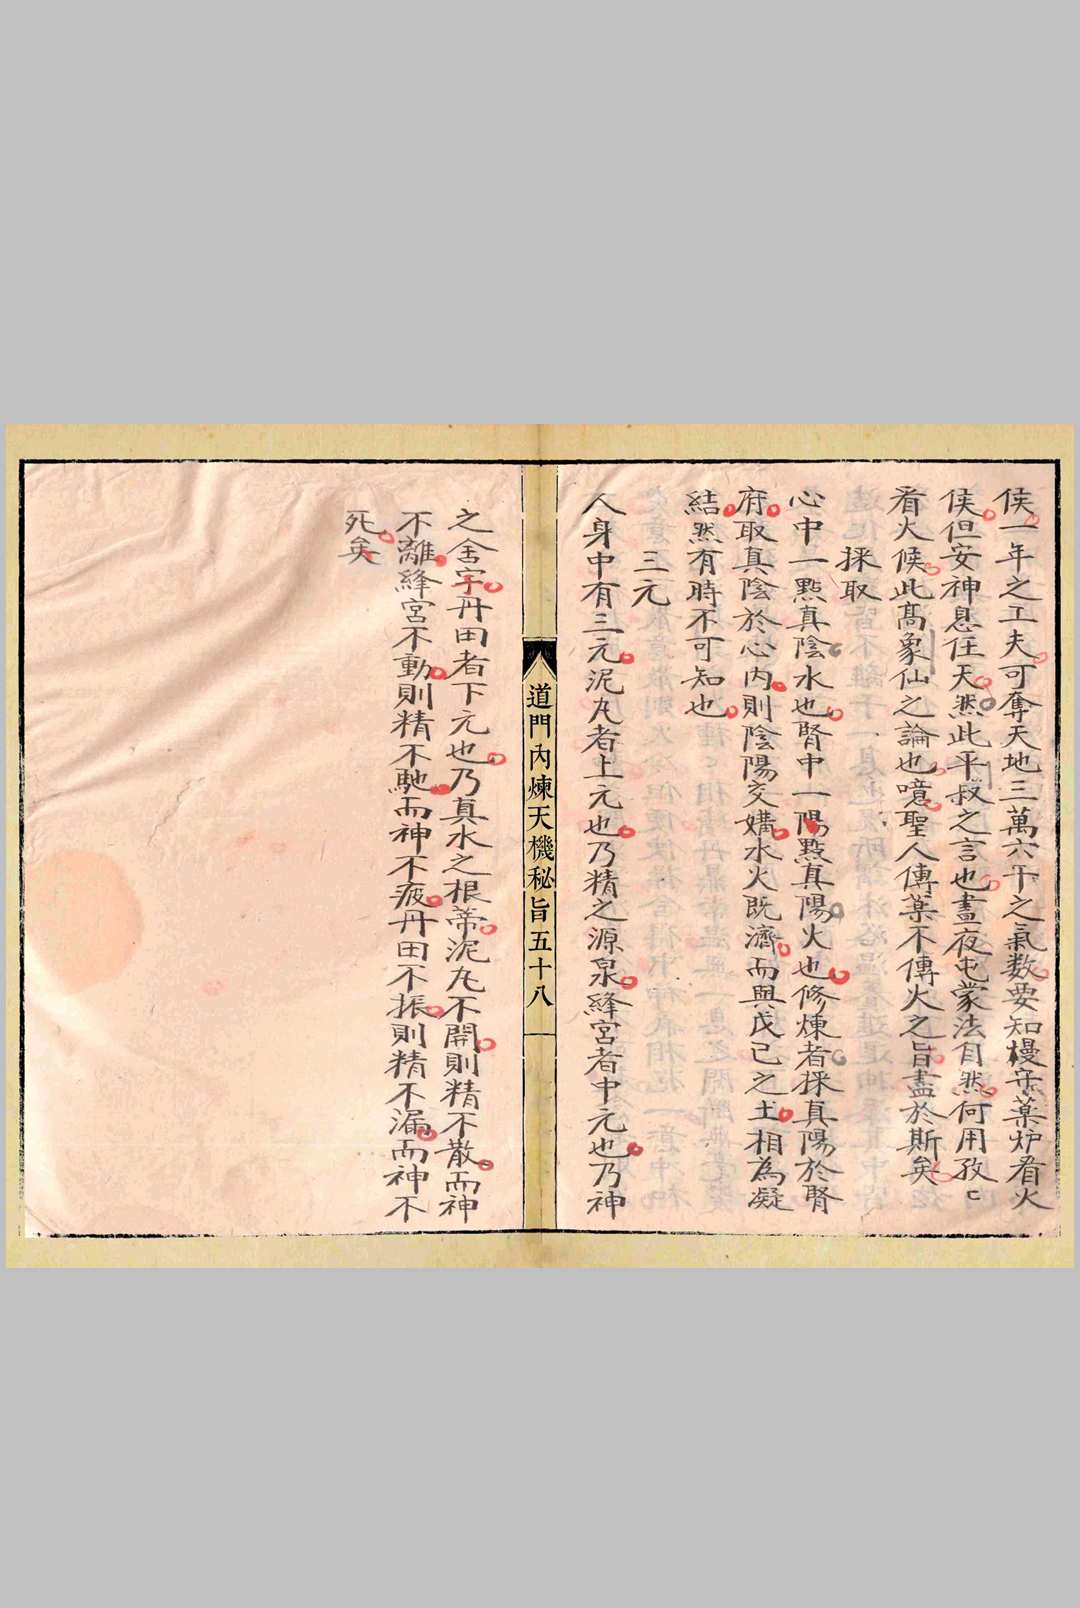 侯一年之工夫可奪天地三萬六千之氣数要知檯守藥炉看火
侯但安神息任天然此平叔之言也晝夜屯蒙法自然何用孜々
看火候此髙象仙之論也噫聖人傳藥不傳火之旨盡於斯矣
採取
心中一點真陰水也腎中一陽點真陽火也修煉者採真陽於腎
府取真陰於心内則陰陽交媾水火既濟而與戊己之土相為凝
結然有時不可知也
三元
人身中有三元泥丸者上元也乃精之源泉絳宮者中元也乃神
道門內煉天機秘旨五十八
之舍字丹田者下元也乃真水之根蒂泥丸不開則精不散而神
不離絳宮不動則精不馳而神不疲丹田不振則精不漏而神不
死矣